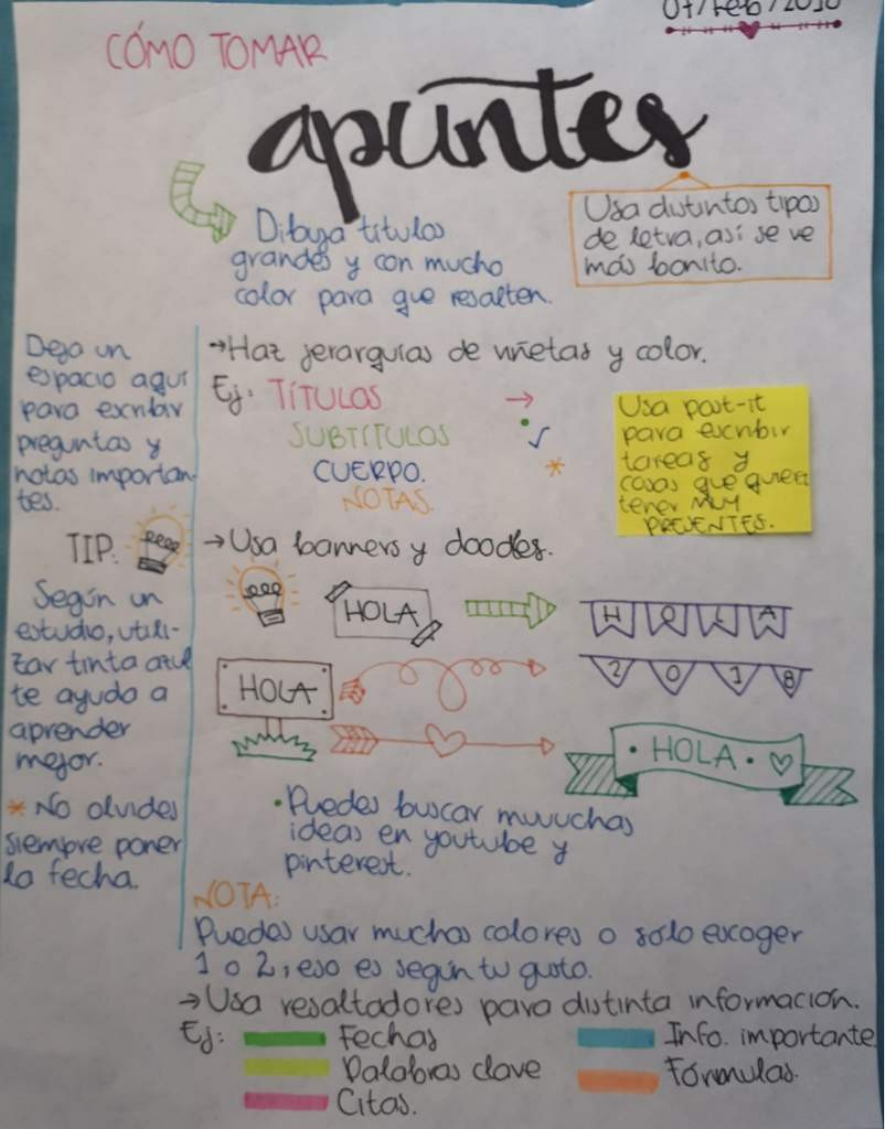 07/Feb/2018
CÓMO TOMAR
apuntes
Dibuja títulos
grandes y con mucho
color para que resalten.
Usa distintos tipos
de letra, así se ve
más bonito.
Deja un
espacio aquí
para escribir
preguntas y
notas importan
tes.
TIP:
Según un
estudio, utili-
zar tinta azul
te ayuda a
aprender
mejor.
* No olvides
siempre poner
la fecha.
→Haz jerarquías de viñetas y color.
Ej: TÍTULOS →
SUBTÍTULOS •
CUERPO. ✓
NOTAS. *
Usa post-it
para escribir
tareas y
cosas que quieres
tener MUY
PRESENTES.
→Usa banners y doodles.
HOLA
HOLA
HOLA
2018
HOLA
• Puedes buscar muuuchas
ideas en youtube y
pinterest.
NOTA:
Puedes usar muchos colores o solo escoger
1 o 2, eso es según tu gusto.
→Usa resaltadores para distinta información.
Ej: Fechas
Palabras clave
Citas.
Info. importante
Fórmulas.